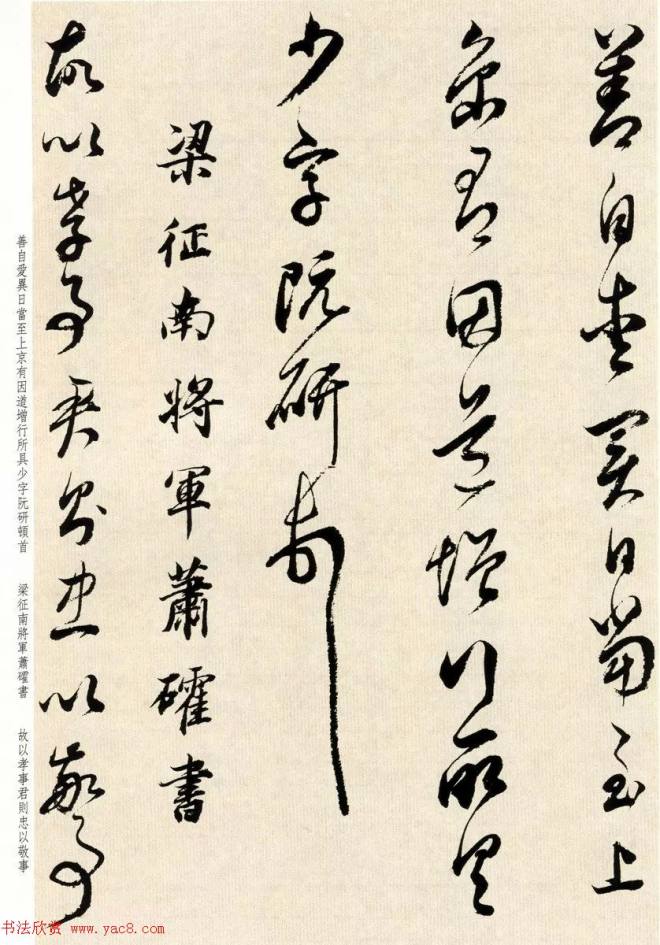 善自愛異日當至上
京有因道增行所具
少字阮研頓首
梁征南將軍蕭確書
故以孝事君則忠以敬事
善自愛異日當至上京有因道增行所具少字阮研頓首 梁征南將軍蕭確書 故以孝事君則忠以敬事
书法欣赏 www.yac8.com